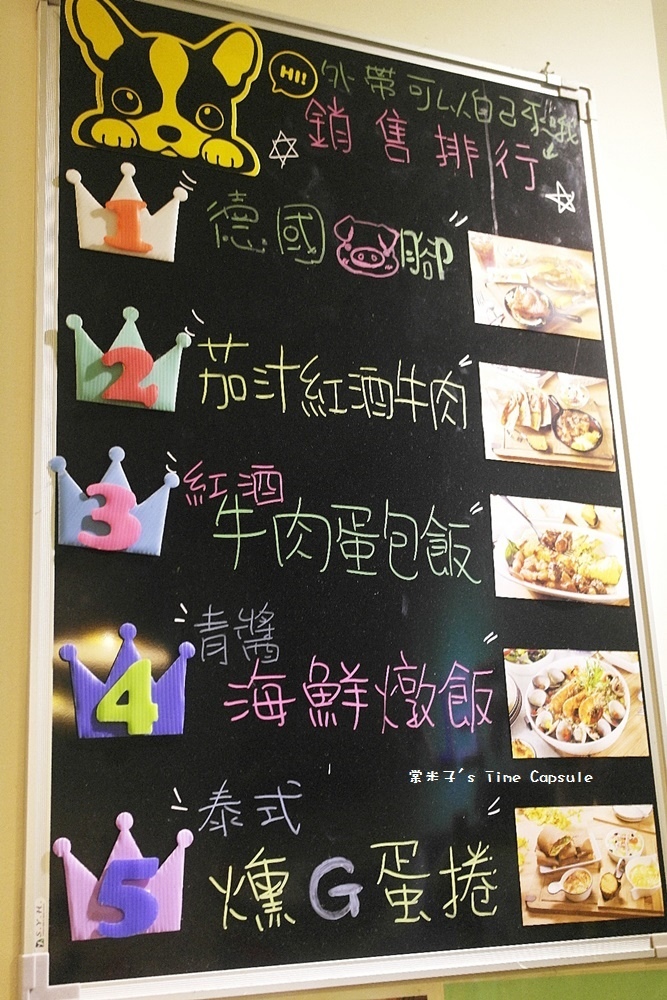 HI!
外帶可以自己來哦
銷售排行
1
德國腳
2
茄汁紅酒牛肉
3
紅酒
牛肉蛋包飯
4
青醬
海鮮燉飯
蒙米子's Time Capsule
5
泰式
燻G蛋捲